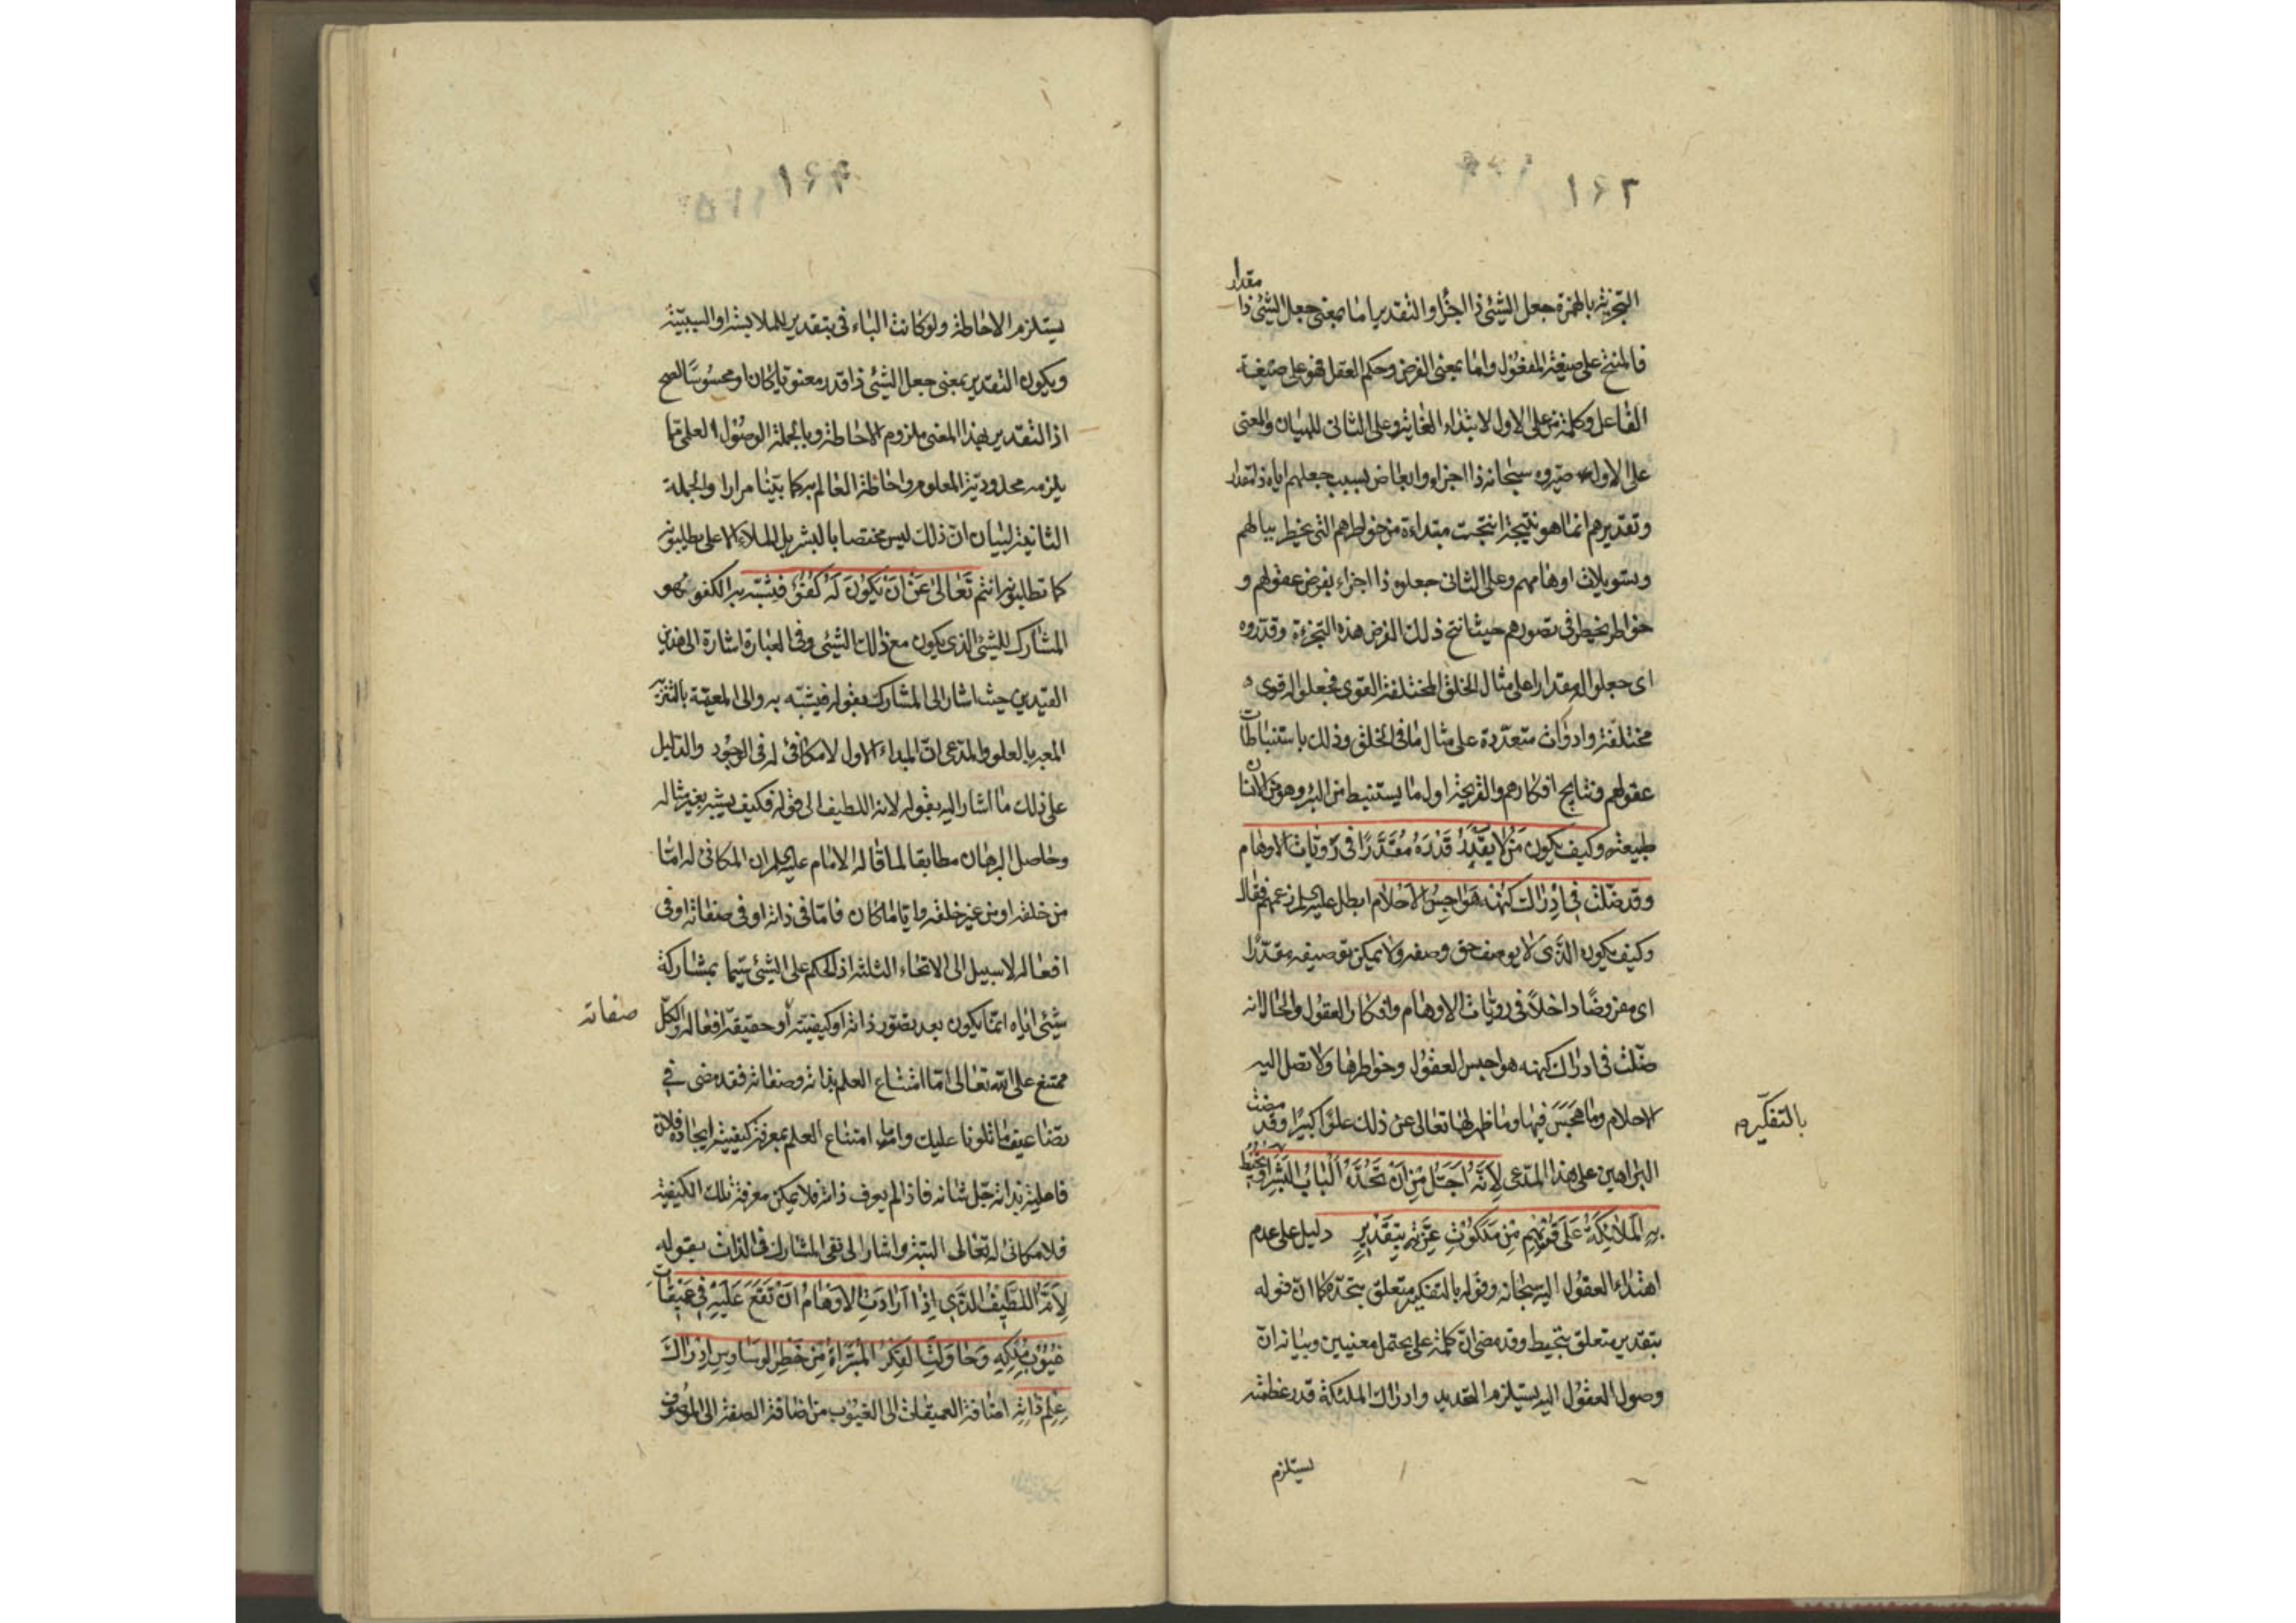 ١٦٢
التجزية بالهمزة جعل الشيئ ذا اجزاء والتقدير اما بمعنى جعل الشيئ ذا مقدار
فالمنتج على صيغة المفعول واما بمعنى الفرض وحكم العقل فهو على صيغة
الفاعل وكلمة من على الاول لابتداء الغاية وعلى الثانى للبيان والمعنى
على الاول صيروه سبحانه ذا اجزاء وابعاض بسبب جعلهم اياه ذا مقدار
وتقديرهم انما هو نتيجة انتجت مبتداءة من خواطرهم التى يخطر ببالهم
وتسويلات اوهامهم وعلى الثانى جعلوه ذا اجزاء بفرض عقولهم و
خواطر يخطر فى تصورهم حيث انتج ذلك الفرض هذه التجزءة وقدروه
اى جعلوا له مقدارا على مثال الخلق المختلفة القوى فجعلوا له قوى
مختلفة وادوات متعددة على مثال ما فى الخلق وذلك باستنباطات
عقولهم ونتايج افكارهم والقريحة اول ما يستنبط من البئر وهو من الانسان
طبيعته وكيف يكون من لا يقدر قدره مقدرا فى رويات الاوهام
وقد ضلت في ادراك كنهه هواجس الاحلام ابطل عليه السلم زعمهم فقال
وكيف يكون الذى لا يوصف حق وصفه ولا يمكن توصيفه مقدرا
اى مفروضا داخلا فى رويات الاوهام وافكار العقول والحال انه
ضلت فى ادراك كنهه هواجس العقول وخواطرها ولا تصل اليه
الاحلام وما هجس فيها وما ظهر لها تعالى عن ذلك علوا كبيرا وقد مضت
البراهين على هذا المدعى لانه اجل من ان تحده الباب البشر او تحيط
بالتفكير
به الملائكة على قربهم من ملكوت عزته بتقدير دليل على عدم
اهتداء العقول اليه سبحانه وقوله بالتفكير متعلق بتحده كما ان قوله
بتقدير متعلق بتحيط وقد مضى ان كلمة على يحتمل معنيين وبيانه ان
وصول العقول اليه يستلزم التحديد وادراك الملئكة قدر عظمته
يستلزم
١٦٣
يستلزم الاحاطة ولو كانت الباء فى بتقدير للملابسة او السببية
ويكون التقدير بمعنى جعل الشيئ ذا قدر معنويا كان او محسوسا لصح
اذ التقدير بهذا المعنى ملزوم الاحاطة وبالجملة الوصول العلمى مما
يلزمه محدودية المعلوم واحاطة العالم به كما بينا مرارا والجملة
الثانية لبيان ان ذلك ليس مختصا بالبشر بل الملاء الاعلى يطلبونه
كما تطلبونه انتم تعالى عن ان يكون له كفؤ فيشبه به الكفو هو
المشارك للشيئ الذى يكون مع ذلك الشيئ وفى العبارة اشارة الى هذين
القيدين حيث اشار الى المشارك بقوله فيشبه به والى المعية بالتنزيه
المعبر بالعلو والمدعى ان المبداء الاول لا مكافئ له فى الوجود والدليل
على ذلك ما اشار اليه بقوله لانه اللطيف الى قوله فكيف يشبه بغير مثاله
وحاصل البرهان مطابقا لما قاله الامام عليه السلم ان المكافئ له اما
من خلقه او من غير خلقه واياما كان فاما فى ذاته او فى صفاته او فى
افعاله لا سبيل الى الانحاء الثلثة اذ الحكم على الشيئ سيما بمشاركة
شيئ اياه انما يكون بعد تصور ذاته او كيفيته او حقيقة افعاله والكل
صفاته
ممتنع على الله تعالى اما امتناع العلم بذاته وصفاته فقد مضى في
تضاعيف ما تلونا عليك واما امتناع العلم بمعرفة كيفية ايجاده فلان
فاعليته بذاته جل شانه فاذا لم يعرف ذاته فلا يمكن معرفة تلك الكيفية
فلا مكافئ له تعالى البتة واشار الى نفى المشارك فى الذات بقوله
لانه اللطيف الذي اذا ارادت الاوهام ان تقع عليه في عميقات
غيوب ملكه وحاولت الفكر المبرأة من خطر الوساوس ادراك
علم ذاته اضافة العميقات الى الغيوب من اضافة الصفة الى الموصوف